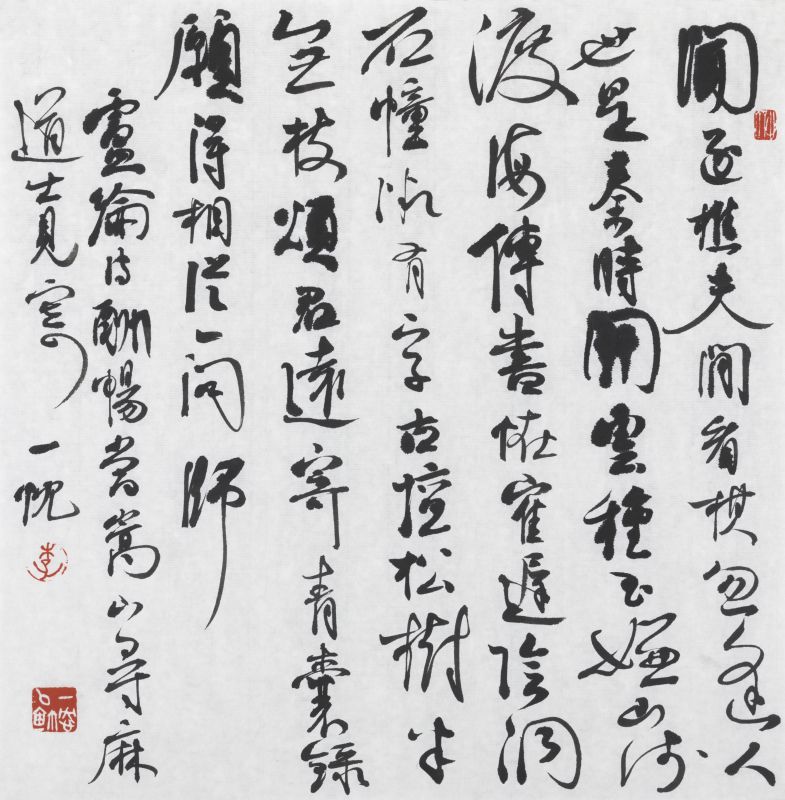 聞逐樵夫閒看棋忽逢人
世是秦時開雲種玉嫌山淺
渡海傳書怪寉遲陰洞
石幢微有字古壇松樹半
無枝煩君遠寄青囊錄
願得相從一問師
盧綸詩酬暢當嵩山尋麻
道士見寄 一
李